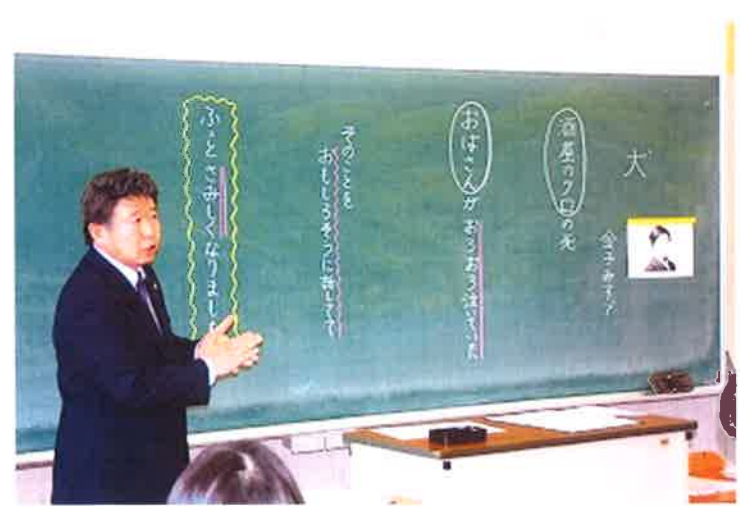 犬
金子みすゞ
酒屋のクロの死
おばさんが おうおう泣いていた
そのことを
おもしろそうに話してて
ふっとさみしくなりました